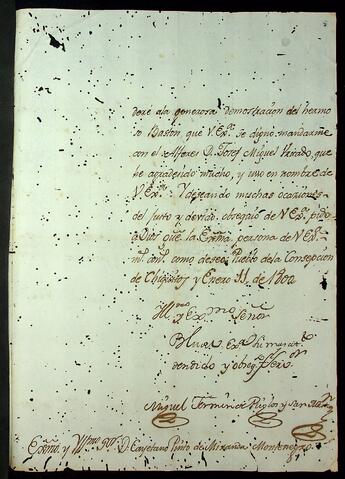 dere ala generosa demostracion del hermo
so Baston, que V.Exª. se dignó mandarme
con el Alferes D. Josef Miguel Prado, que
he agradecido mucho, y uso en nombre de
V.Exª. Y deseando muchas ocaziones
del justo y devido obsequio de V.Exª. pido
a Dios gue. la Exma. persona de V.Exª.
ms. ans. como deseo. Pueblo de la Consepcion
de Chiquitos y Enero 31 de 1800
Illmo. y Exmo. Señor
B. L. M. a V. Exª. su mas
rendido y obseqte. servor.
Miguel Fermin de Riglos y San Martin
Exmo. y Illmo. Sor. D. Cayetano Pinto de Miranda Montenegro.